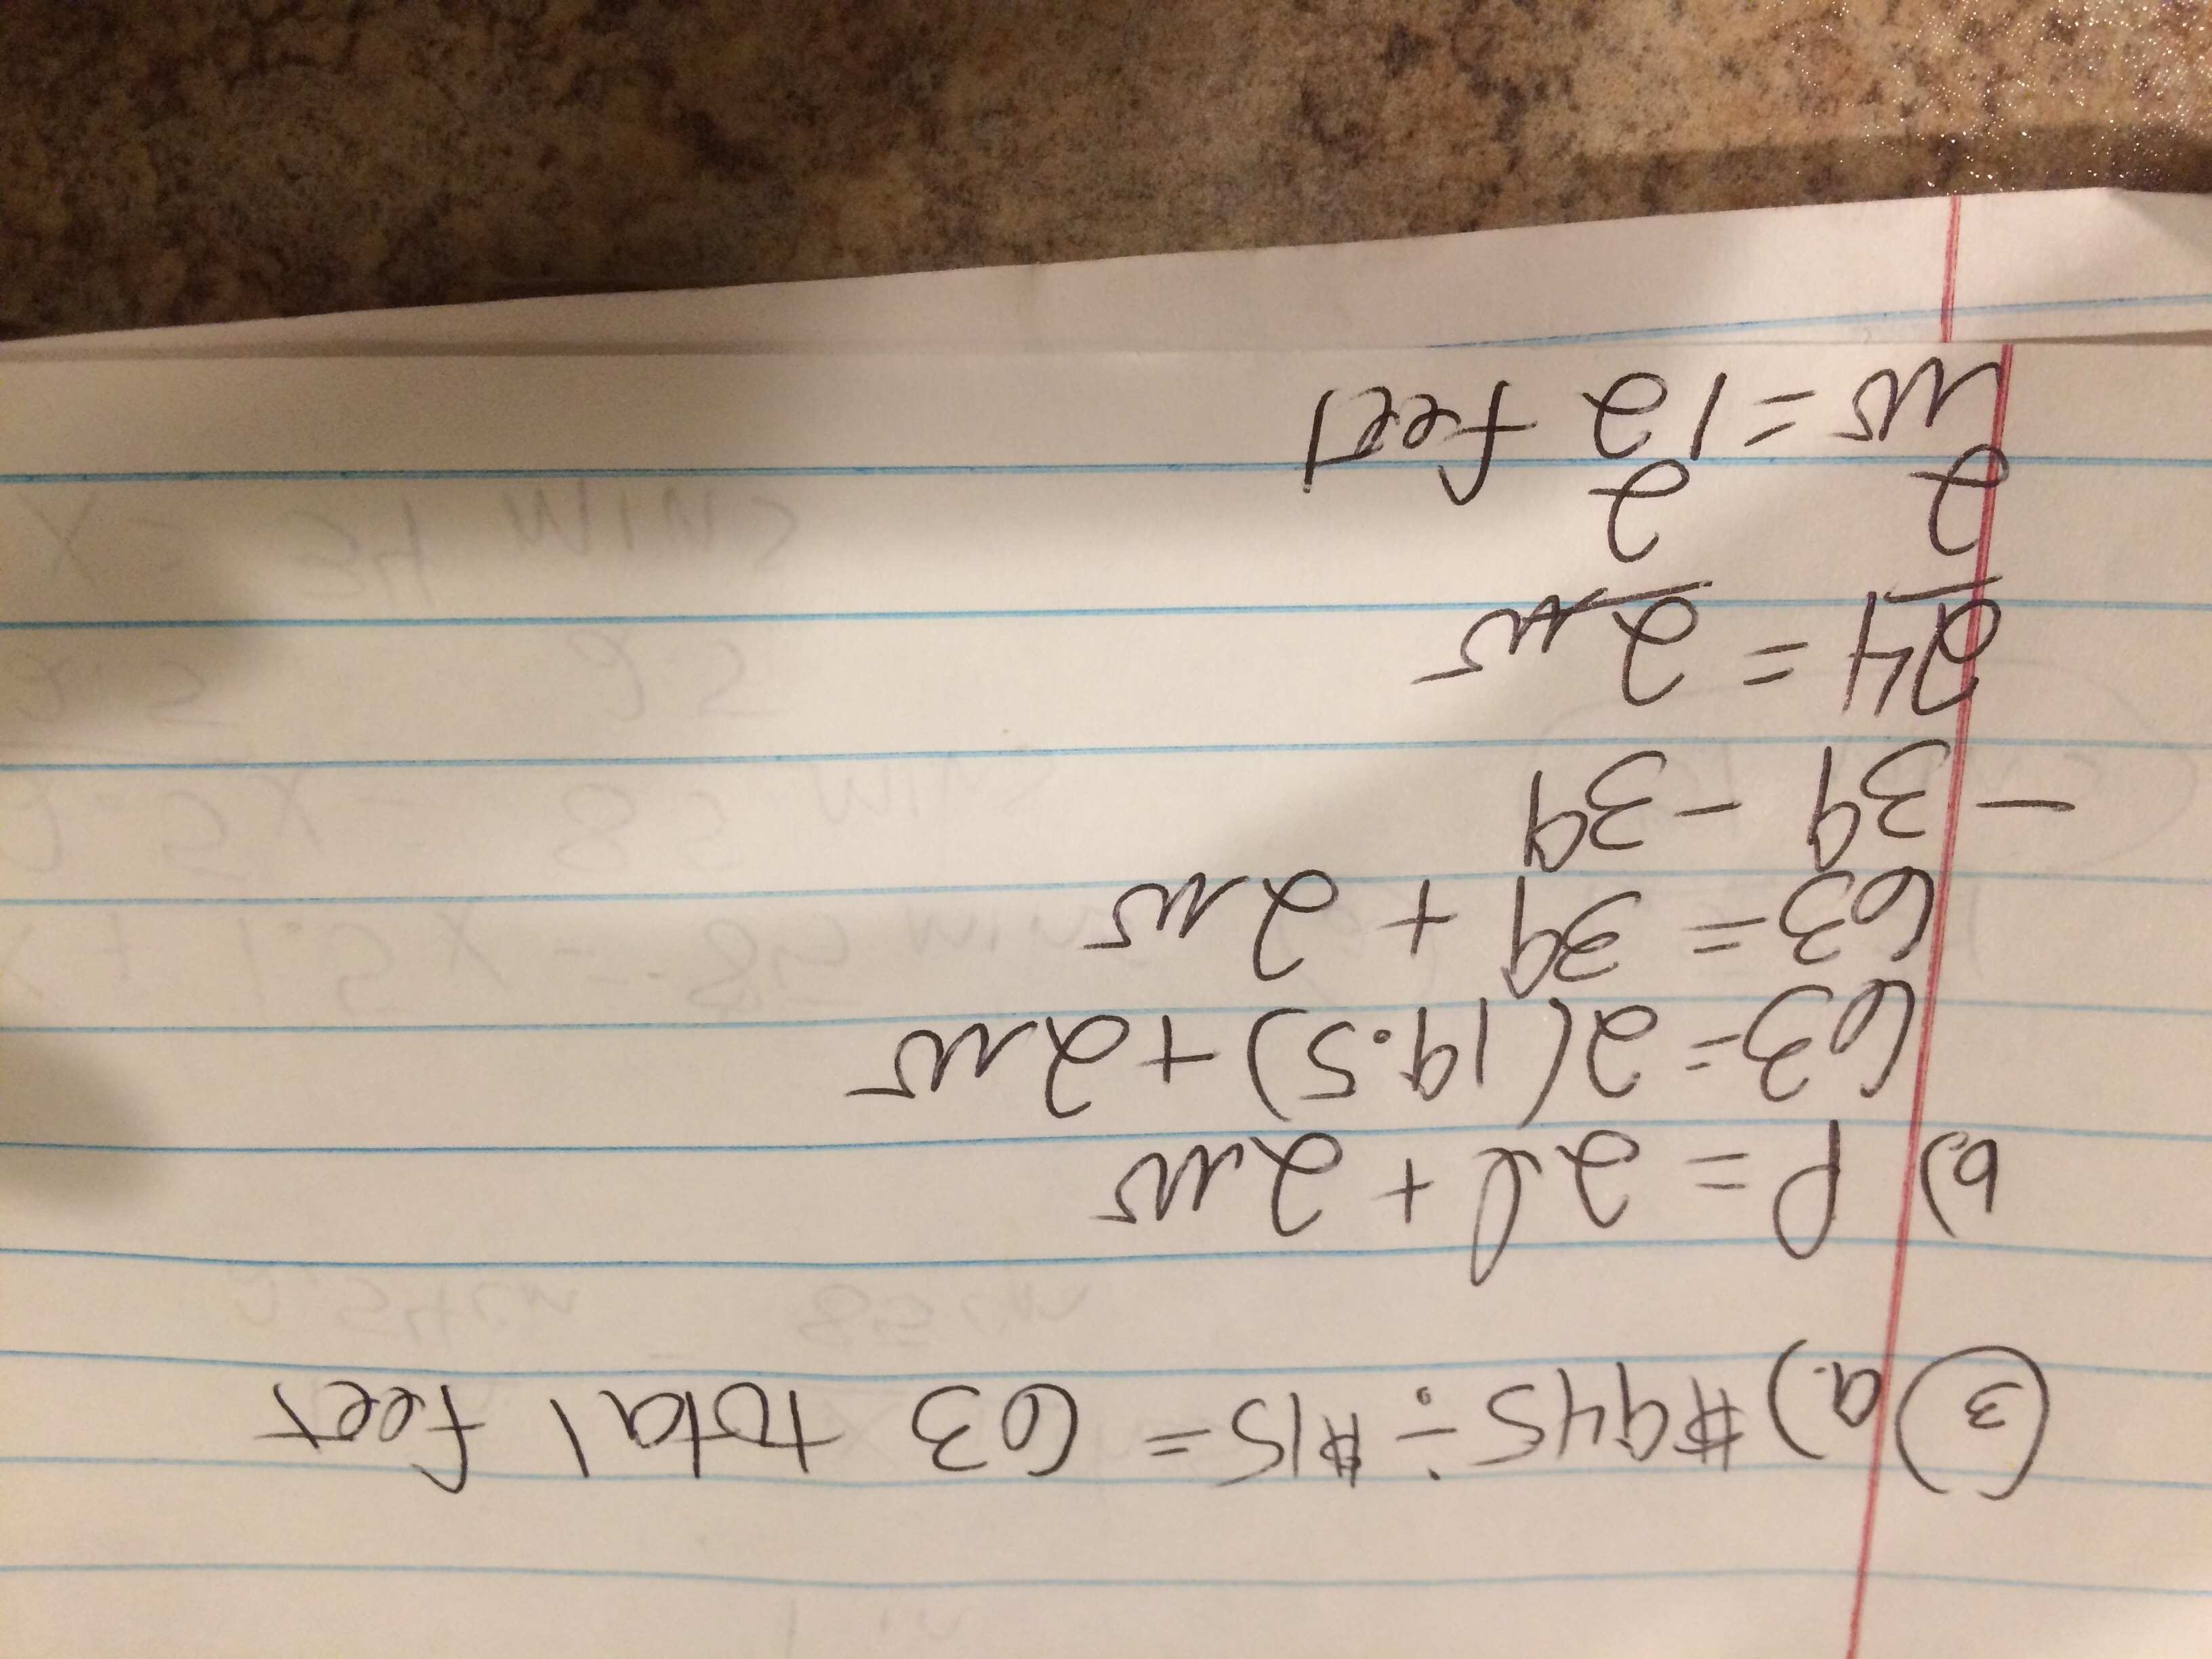 3 a.) $945 ÷ $15 = 63 total feet
b.) P = 2l + 2w
63 = 2(19.5) + 2w
63 = 39 + 2w
- 39 - 39
24 = 2w
2 2
w = 12 feet